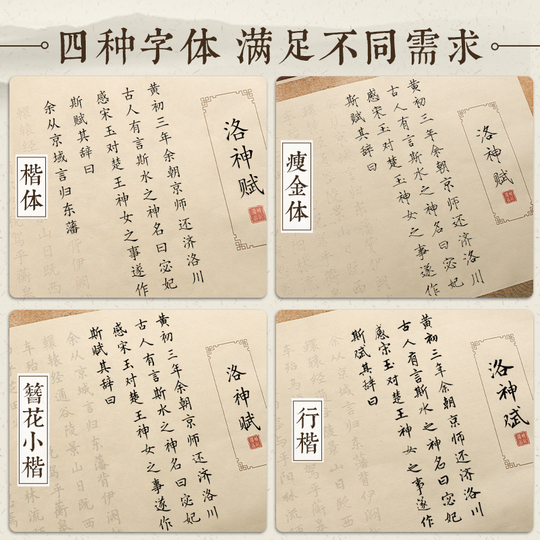 四种字体 满足不同需求
楷体
洛神赋
黄初三年余朝京师还济洛川
古人有言斯水之神名曰宓妃
感宋玉对楚王神女之事遂作
斯赋其辞曰
余从京域言归东藩
瘦金体
洛神赋
黄初三年余朝京师还济洛川
古人有言斯水之神名曰宓妃
感宋玉对楚王神女之事遂作
斯赋其辞曰
簪花小楷
洛神赋
黄初三年余朝京师还济洛川
古人有言斯水之神名曰宓妃
感宋玉对楚王神女之事遂作
斯赋其辞曰
余从京域言归东藩背伊阙
行楷
洛神赋
黄初三年余朝京师还济洛川
古人有言斯水之神名曰宓妃
感宋玉对楚王神女之事遂作
斯赋其辞曰
余从京域言归东藩背伊阙